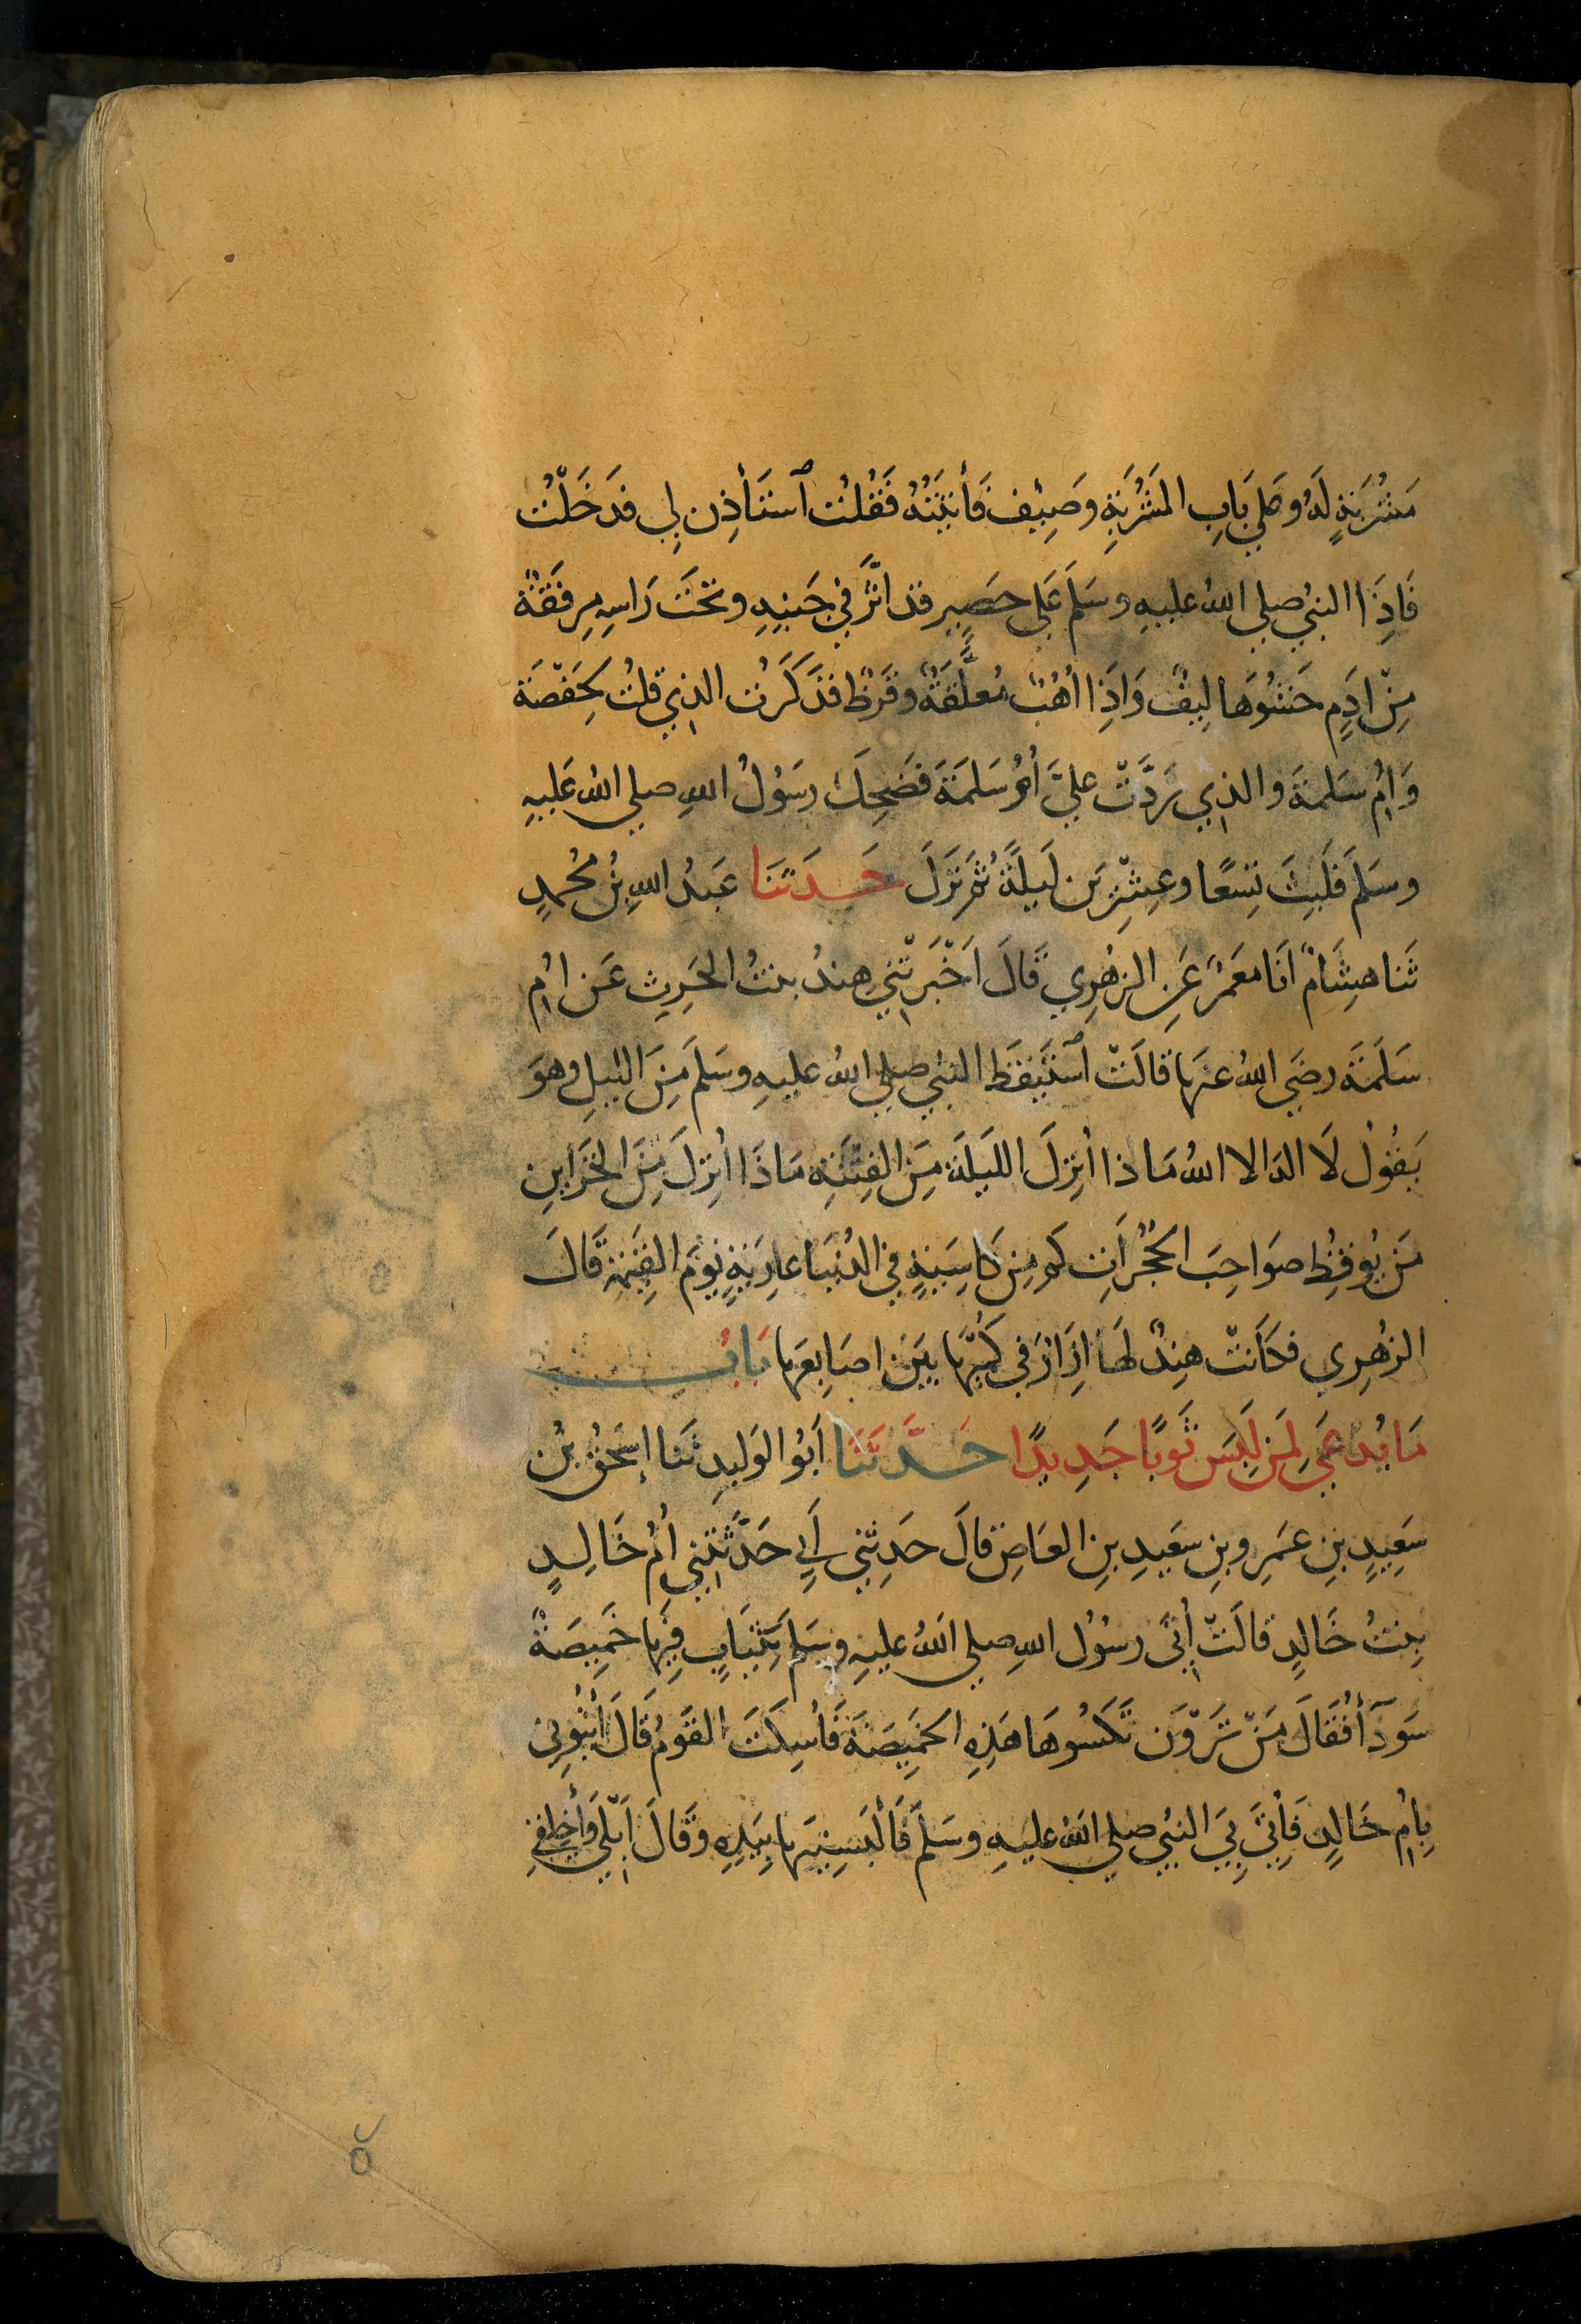 مَشْرُبَةٍ لَهُ وعَلى بَابِ المَشْرُبَةِ وَصِيْف فَأتَيْتُهُ فَقُلْتُ ٱسْتَأذِن لِي فدَخَلْتُ
فَاِذَا النبيُ صلى اللهُ عليهِ وسَلمَ عَلى حَصِيرٍ قد اثَّرَ فِي جَنبِهِ وتحْتَ رَاسِهِ مِرفَقَةٌ
مِنْ ادَمٍ حَشْوُهَا لِيفٌ وَاذَا اُهُبٌ مُعلَّقَةٌ وقَرظٌ فذَكَرْتُ الذِي قلتُ لِحَفْصَة
وَاُمِ سَلمةَ والذِي رَدَّتْ عليَّ اُمُّ سَلمَةَ فضَحِكَ رسَوُلُ اللهِ صلى اللهُ عَليهِ
وسَلمَ فَلَبِثَ تِسْعًا وعِشْرِين لَيلَةً ثُمَّ نَزَلَ حَدَثَنَا عَبدُ اللهِ بْنُ مُحُمدٍ
ثَنا هِشَامٌ انَا مَعْمَرٌ عَنِ الزهْرِي قَالَ اَخْبَرَتْنِي هِندُ بنتُ الحَرِثِ عَن اُم
سَلَمَةَ رضَي اللهُ عنهَا قالَتْ ٱسْتَيْقَظَ النبيُ صلى اللهُ عليهِ وسَلمَ مِنَ الليلِ وهوَ
يَقُوُلُ لَا اله الا اللهُ مَاذا اُنزِلَ اللَيلَة مِنَ الفِتْنَةِ مَاذَا اُنزِلَ مِنَ الخزَاين
مَن يُوقِظُ صوَاحِبَ الحُجُرَاتِ كم مِن كَاسِيَةٍ فِي الدُنيَا عارِيَةٍ يَوْمَ القِيَمةِ قَالَ
الزهْرِي فكَانَتْ هِندٌ لهَا ازرَارٌ فِي كُمَيْهَا بَيْنَ اصَابِعَهَا بَابُ
مَا يُدعَى لِمَنْ لَبِسَ ثَوبًا جَدِيدًا حَدَّثَنَا اَبُو الوَليدِ ثَنا اِسحٰقُ بْنُ
سَعِيدِ بْنِ عَمرِو بنِ سعَيدِ بنِ العَاصِ قالَ حدَثني أَبِي حَدَّثَتْنِي اُمُ خَالِدٍ
بِنتُ خَالِدٍ قالَتْ اُتِيَ رسوُلُ اللهِ صلى اللهُ عليهِ وسَلمَ بثِيَابٍ فِيهَا خَمِيصَةٌ
سَودَآءُ فَقَالَ مَنْ تَرَوْنَ نَكسُوهَا هَذِهِ الخَمِيصَةَ فَاُسكِتَ القَومُ قَالَ اُيتُونِي
بِاُمِ خَالِدٍ فَاُتِيَ بِيَ النبيُ صلى اللهُ عليهِ وسَلمَ فَألْبَسنِيهَا بيَدِهِ وقَالَ اَبْلِي وَأخلِقِي